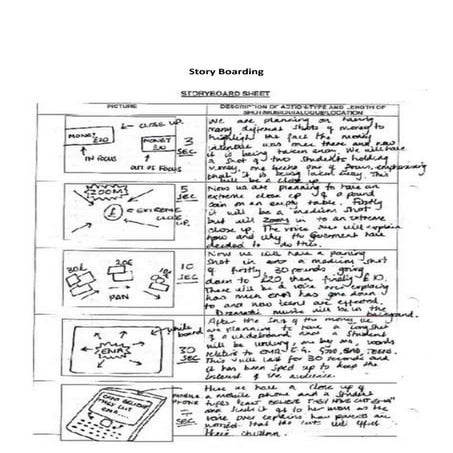 Story Boarding
STORYBOARD SHEET
PICTURE
DESCRIPTION OF ACTION TYPE AND LENGTH OF
CLOSE UP.
MONEY
£20
MONEY
IN FOCUS
OUT OF FOCUS
3
SEC
We are planning on having
many different shots of money to
highlight the fact the money
was there and now
it is being taken away. We will have
a shot of two students holding
being taken away. This
will be a close up
ZOOM
£
EXTREME
CLOSE
UP
5
SEC
Now we are planning to have an
extreme close up of a pound
coin on an empty table. Firstly
it will be a medium shot
but will zoom in to an extreme
close up. The voice over will explain
how and why the Goverment have
decided to do this.
30£
20£
10£
PAN
10
SEC
Now we will have a panning
shot in a medium shot
of firstly 30 pounds going
down to £20 then finally £10.
There will be a voice over explaining
how much EMA has gone down
to and how teens are effected.
Dramatic music will be in the
background.
white
board
EMA
30
SEC
After the of the money we
are planning to have a long shot
of a whiteboard and a student
will be writing, one by one, words
relating to EMA E.G. £30, SAD, TEENS.
This will last for 30 seconds and
it has been sped up to keep the
interest of the audience.
CANT BELIEVE
THEY CUT
EMA
MOBILE
PHONE
7
SEC
Here we have a close up of
a mobile phone and a student
types "CANT BELIEVE THEY HAVE CUT EMA"
and sends it to her mum as the
voice over explains how parents are
worried that the cuts will effect
their children.